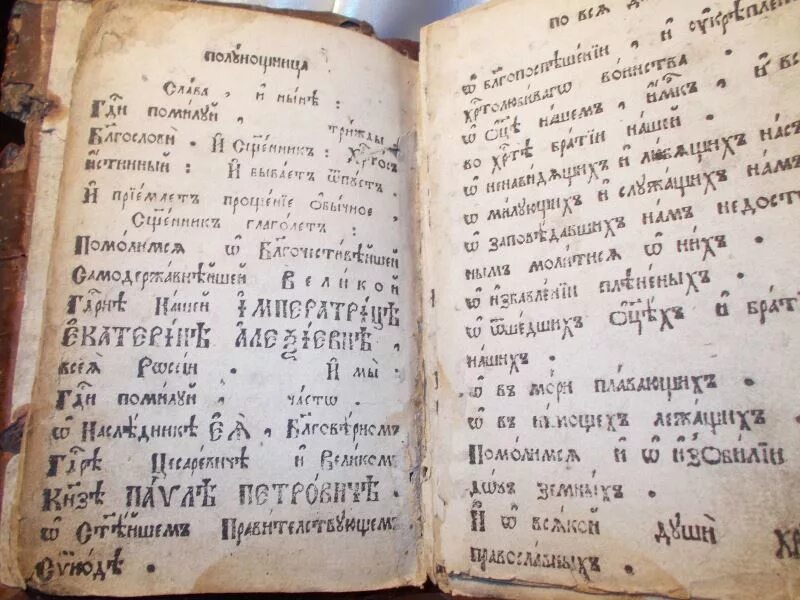 полꙋнощница
Слава , и҆ ны́нѣ :
Гдⷭ҇и поми́лꙋй , три́жды
Бл҃гослови̂ . И҆ Сщ҃е́нникъ : Хрⷭ҇то́съ
и҆́стинный : И҆ быва́етъ ѿпꙋстъ .
И҆ прїе́млетъ проще́нїе ѻ҆бы́чное ,
Сщ҃е́нникъ глаго́летъ :
Помо́лимсѧ ѡ҆ Бл҃гочести́вѣйшей
Самодержа́внѣйшей Вели́кой
Гдⷭ҇рнѣ На́шей І҆МПЕРАТРИЦѢ
Е҆КАТЕРИ́НѢ А҆ЛЕѮІЕВНѢ ,
всеѧ̀ Рѡссі́и . И҆ мы̀ :
Гдⷭ҇и поми́лꙋй , ча́стѡ .
ѡ҆ Наслѣ́дникѣ Е҆Ѧ̀ , Бл҃говѣ́рномъ
Гдⷭ҇рѣ Цесаре́вичѣ и҆ Вели́комъ
Кн҃зѣ ПА́ѴЛѢ ПЕТРО́ВИЧѢ .
ѡ҆ Ст҃ѣ́йшемъ Прави́телствꙋющемъ
Сѷно́дѣ .
по всѧ̑
ѡ҆ бл҃гопоспѣше́нїи , и҆ ᲂу҆крѣпле́н
хрⷭ҇толюби́вагѡ во́инства .
ѡ҆ Ѻ҆ц҃ѣ̀ на́шемъ , и҆м҃к , и҆ все
во хрⷭ҇тѣ̀ бра́тїи на́шей .
ѡ҆ ненави́дѧщихъ и҆ лю́бѧщихъ на́съ
ѡ҆ ми́лꙋющихъ и҆ слꙋжа́щихъ на́мъ
ѡ҆ заповѣ́давшихъ на́мъ недосто
нымъ моли́тисѧ ѡ҆ ни́хъ .
ѡ҆ и҆збавле́нїи плѣне́ныхъ .
ѡ҆ ѿше́дшихъ Ѻ҆ц҃ѣхъ и҆ бра́т
на́шихъ .
ѡ҆ въ мо́ри пла́вающихъ .
ѡ҆ въ не́мощехъ лежа́щихъ .
Помо́лимсѧ и҆ ѡ҆ и҆зоби́лїи
дѡ́въ земны́хъ .
И҆ ѡ҆ всѧ́кой дꙋшѝ хр
правосла́вныхъ .